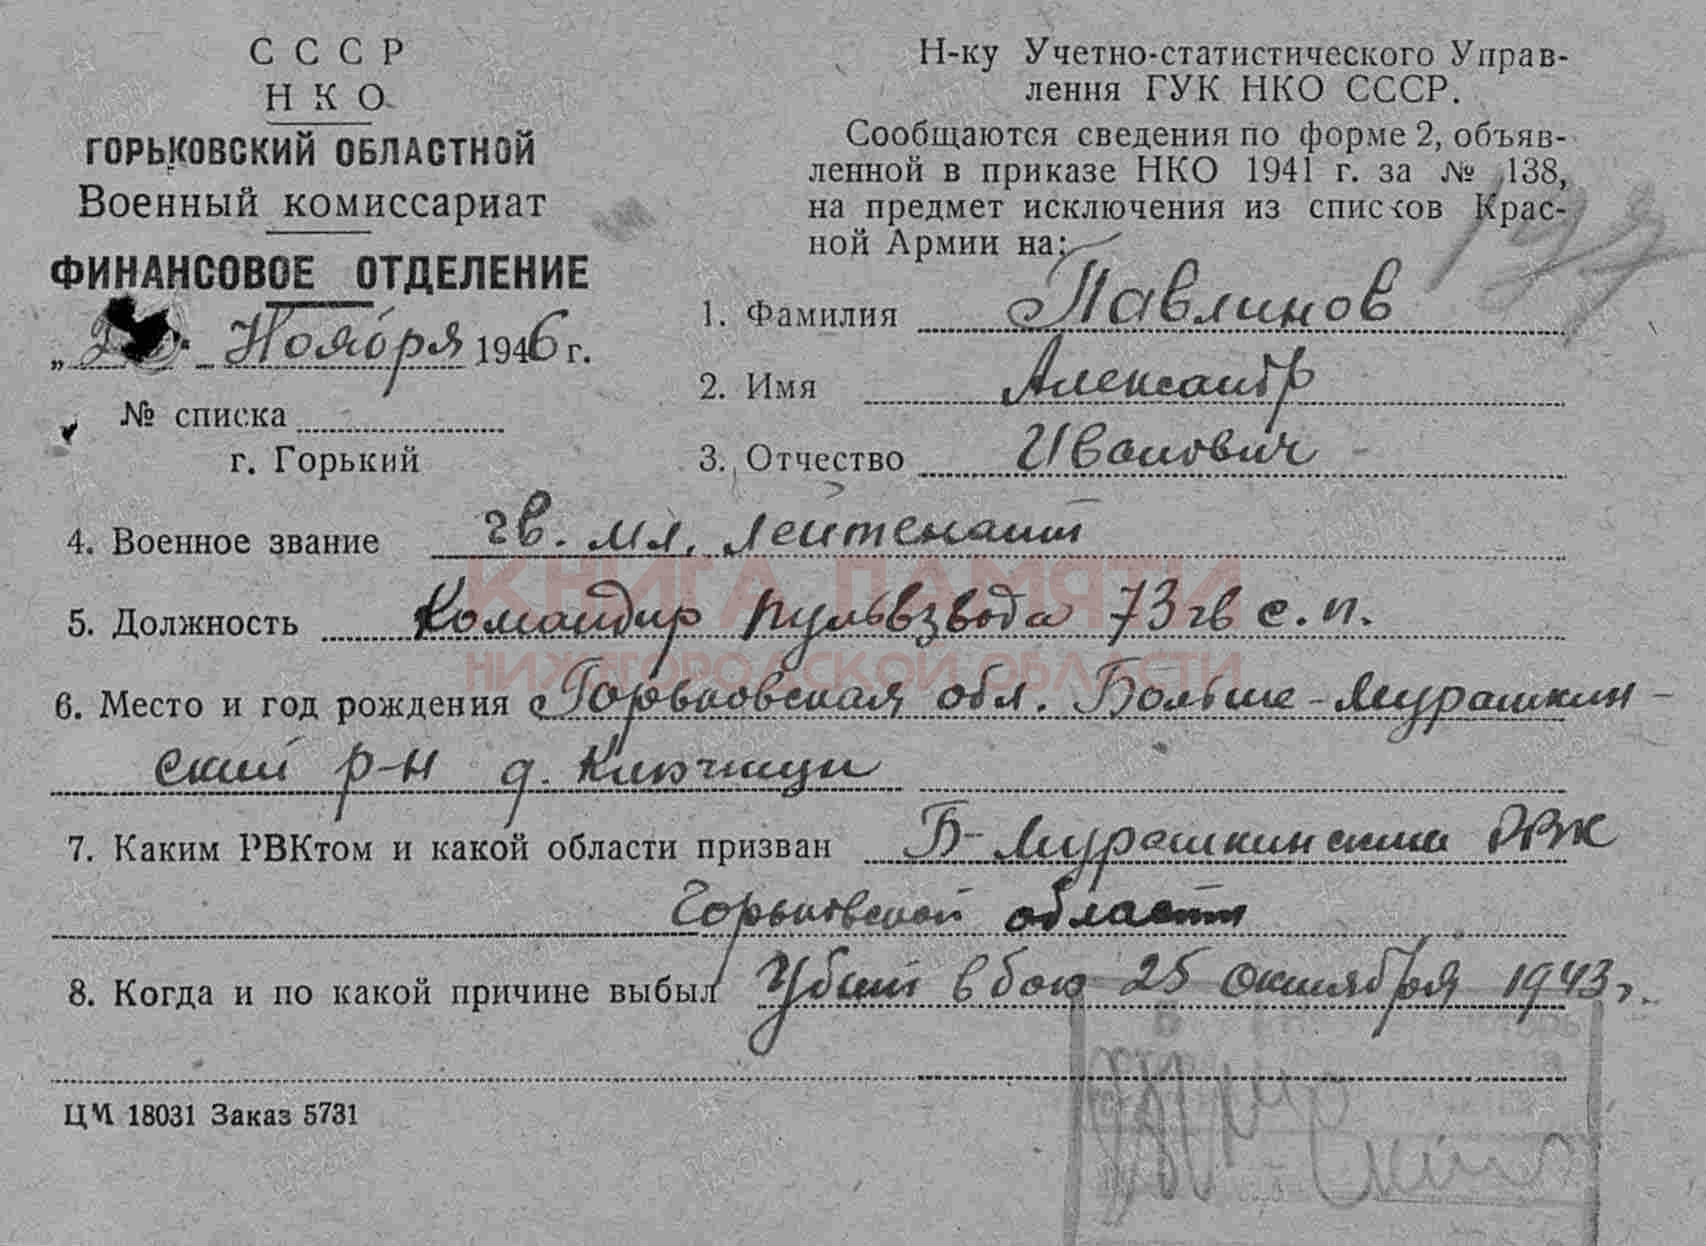 СССР
НКО
ГОРЬКОВСКИЙ ОБЛАСТНОЙ
Военный комиссариат
ФИНАНСОВОЕ ОТДЕЛЕНИЕ
Ноября 1946 г.
№ списка
г. Горький
Н-ку Учетно-статистического Управ-
ления ГУК НКО СССР.
Сообщаются сведения по форме 2, объяв-
ленной в приказе НКО 1941 г. за № 138,
на предмет исключения из списков Крас-
ной Армии на:
1. Фамилия Павлинов
2. Имя Александр
3. Отчество Иванович
4. Военное звание гв. мл. лейтенант
5. Должность Командир пульвзвода 73 гв с.п.
6. Место и год рождения Горьковская обл. Больше-Мурашкин-
ский р-н д. Кишчици
7. Каким РВКтом и какой области призван Б-Мурашкинский РВК
Горьковской области
8. Когда и по какой причине выбыл Убит в бою 25 октября 1943 г.
ЦМ 18031 Заказ 5731
КНИГА ПАМЯТИ
НИЖЕГОРОДСКОЙ ОБЛАСТИ